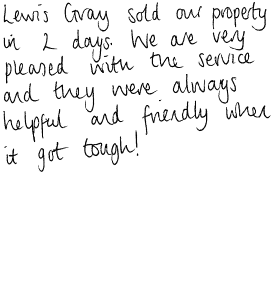 Lewis Gray sold our property
in 2 days. We are very
pleased with the service
and they were always
helpful and friendly when
it got tough!